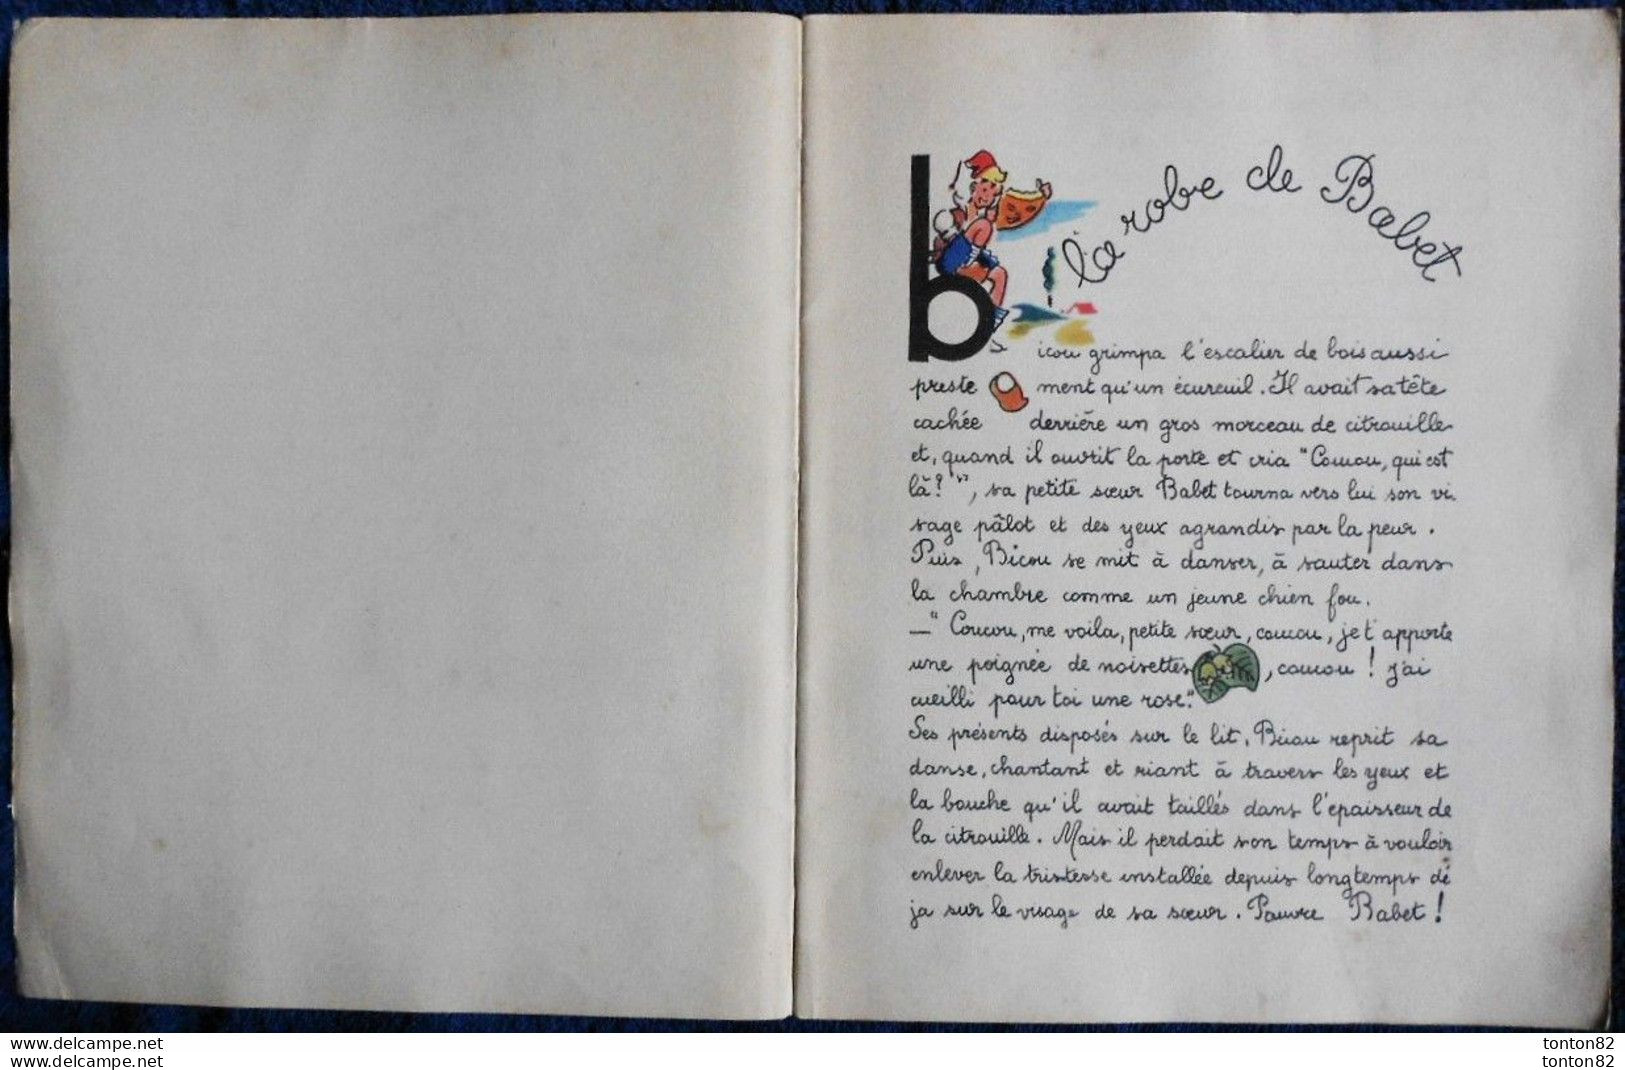 la robe de Babet
bicou grimpa l'escalier de bois aussi
prestement qu'un écureuil. Il avait sa tête
cachée derrière un gros morceau de citrouille
et, quand il ouvrit la porte et cria "Coucou, qui est
là?", sa petite sœur Babet tourna vers lui son vi-
sage pâlot et des yeux agrandis par la peur.
Puis, Bicou se mit à danser, à sauter dans
la chambre comme un jeune chien fou.
—"Coucou, me voila, petite sœur, coucou, je t'apporte
une poignée de noisettes, coucou ! j'ai
cueilli pour toi une rose."
Ses présents disposés sur le lit, Bicou reprit sa
danse, chantant et riant à travers les yeux et
la bouche qu'il avait taillés dans l'épaisseur de
la citrouille. Mais il perdait son temps à vouloir
enlever la tristesse installée depuis longtemps dé
ja sur le visage de sa sœur. Pauvre Babet !
tonton82
tonton82